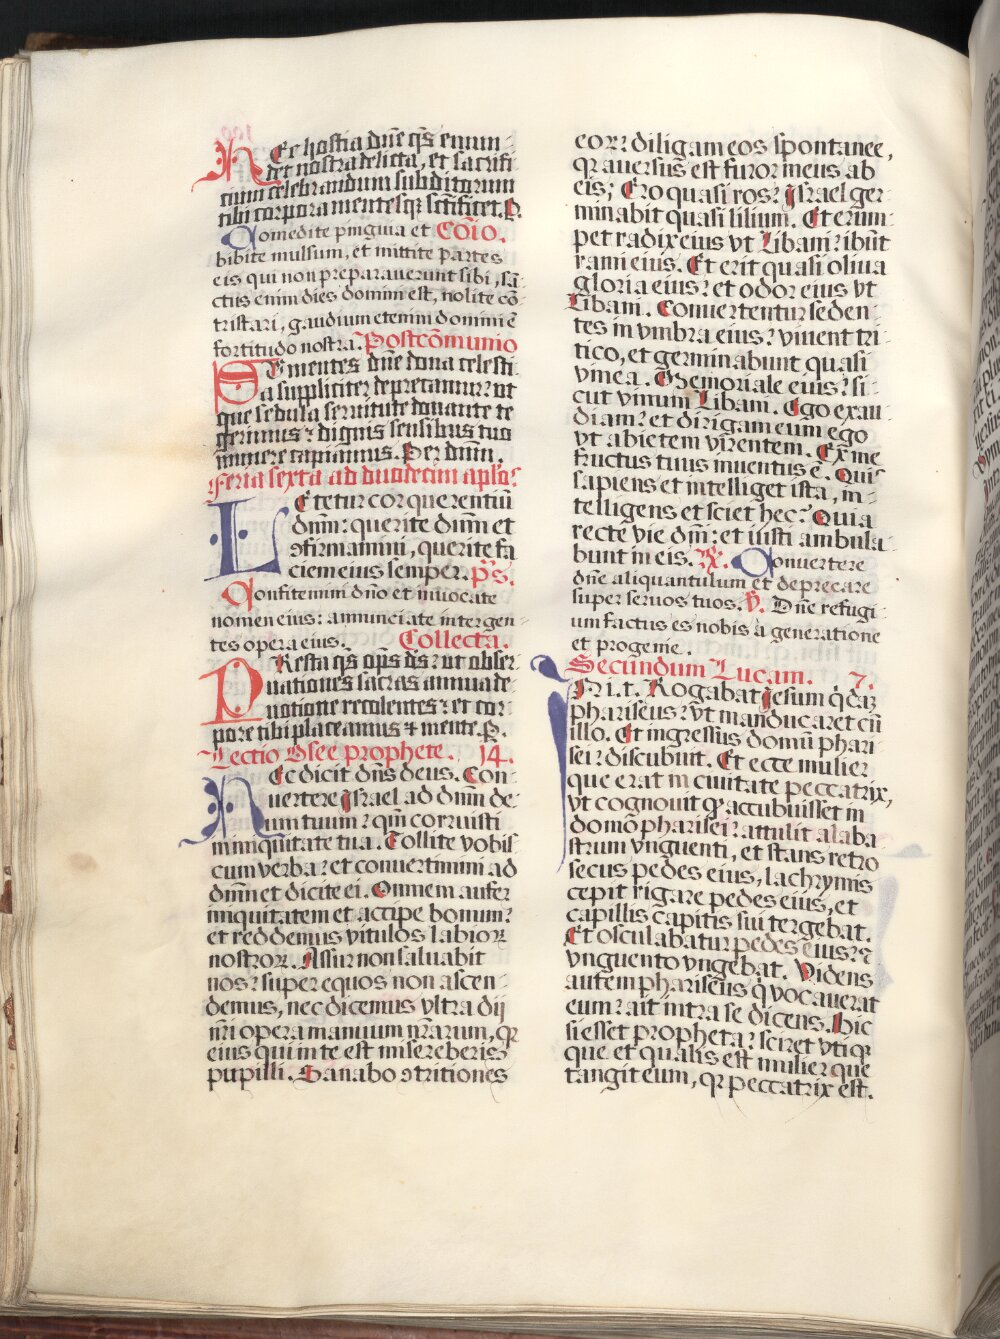 Hec hostia dn̄e q̄s emun-
det nostra delicta, et sacrifi
cium celebrandum subditorum
tibi corpora mentesq; sc̄tificet. P.
Comedite pinguia et Cōīo.
bibite mulsum, et mittite partes
eis qui non preparauerunt sibi, sā-
ctus enim dies domini est, nolite cō-
tristari, gaudium etenim domini ē
fortitudo nostra. Postcōmunio
DEmentes dn̄e dona celesti-
a suppliciter deprecamur: vt
que sedula seruitute donante te
gerimus: dignis sensibus tuo
munere capiamus. Per dn̄m.
Feria sexta ad duodecim aplōs.
LEtetur cor querentiū
dn̄m: querite dn̄m et
ɔfirmamini, querite fa
ciem eius semper. p̄s.
Confitemini dn̄o et inuocate
nomen eius: annunciate inter gen-
tes opera eius. Collecta.
PResta q̄s op̄s ds̄: ut obser-
uationes sacras annua de-
uotione recolentes: et cor-
pore tibi placeamus & mente. P.
Lectio Osee prophete. 14.
Hec dicit dn̄s deus. Con-
uertere Israel ad dn̄m de-
um tuum: qm̄ corruisti
in iniquitate tua. Tollite vobis-
cum verba: et conuertimini ad
dn̄m et dicite ei. Omnem aufer
iniquitatem et accipe bonum:
et reddemus vitulos labioꝝ
nostroꝝ. Assur non saluabit
nos: super equos non ascen-
demus, nec dicemus vltra dij
nr̄i opera manuum nr̄arum, qꝛ
eius qui in te est misereberis
pupilli. Sanabo ɔtritiones
eoꝝ: diligam eos spontanee,
qꝛ auersus est furor meus ab
eis; Ero quasi ros: Israel ger-
minabit quasi lilium. Et erum-
pet radix eius vt Libani: ibūt
rami eius. Et erit quasi oliua
gloria eius: et odor eius vt
Libani. Conuertentur seden-
tes in vmbra eius: viuent tri-
tico, et germinabunt quasi
vinea. Memoriale eius: si-
cut vinum Libani. Ego exau-
diam: et dirigam eum ego
vt abietem virentem. Ex me
fructus tuus inuentus ē. Quis
sapiens et intelliget ista, in-
telligens et sciet hec: Quia
recte vie dn̄i: et iusti ambula-
bunt in eis. ℟. Conuertere
dn̄e aliquantulum et deprecare
super seruos tuos. ℣. Dn̄e refugi-
um factus es nobis à generatione
et progenie.
Secundum Lucam. 7.
IN i. t. Rogabat Iesum q̇dā
phariseus: vt manducaret cū
illo. Et ingressus domū phari-
sei: discubuit. Et ecce mulier
que erat in ciuitate peccatrix,
vt cognouit ꝙ accubuisset in
domo pharisei: attulit alaba-
strum vnguenti, et stans retro
secus pedes eius, lachrymis
cepit rigare pedes eius, et
capillis capitis sui tergebat.
Et osculabatur pedes eius: &
vnguento vngebat. Videns
autem phariseus q̇ vocauerat
eum: ait intra se dicens. Hic
si esset propheta: sciret vtiq;
que et qualis est mulier que
tangit eum, qꝛ peccatrix est.